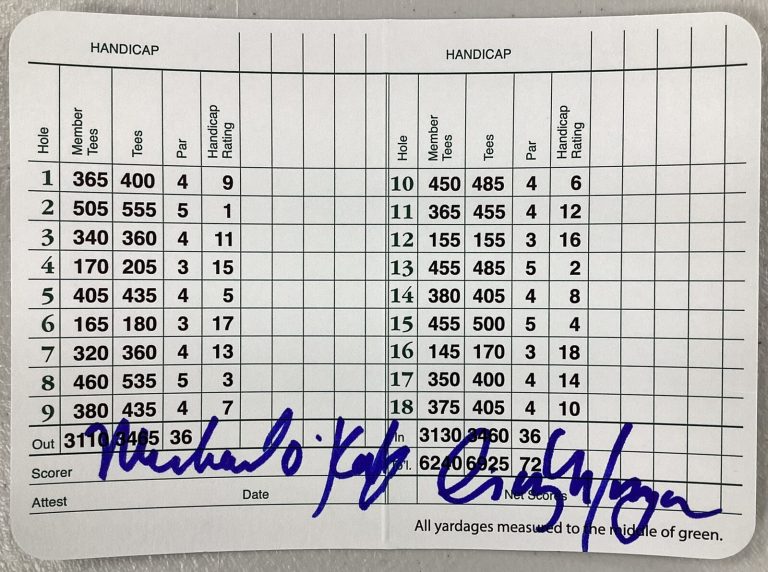 HANDICAP
Hole Member Tees Tees Par Handicap Rating
1 365 400 4 9
2 505 555 5 1
3 340 360 4 11
4 170 205 3 15
5 405 435 4 5
6 165 180 3 17
7 320 360 4 13
8 460 535 5 3
9 380 435 4 7
Out 3110 3465 36
Scorer
Attest Date
Michael O'Keefe
HANDICAP
Hole Member Tees Tees Par Handicap Rating
10 450 485 4 6
11 365 455 4 12
12 155 155 3 16
13 455 485 5 2
14 380 405 4 8
15 455 500 5 4
16 145 170 3 18
17 350 400 4 14
18 375 405 4 10
In 3130 3460 36
6240 6925 72
Net Scores
Cindy Morgan
All yardages measured to the middle of green.